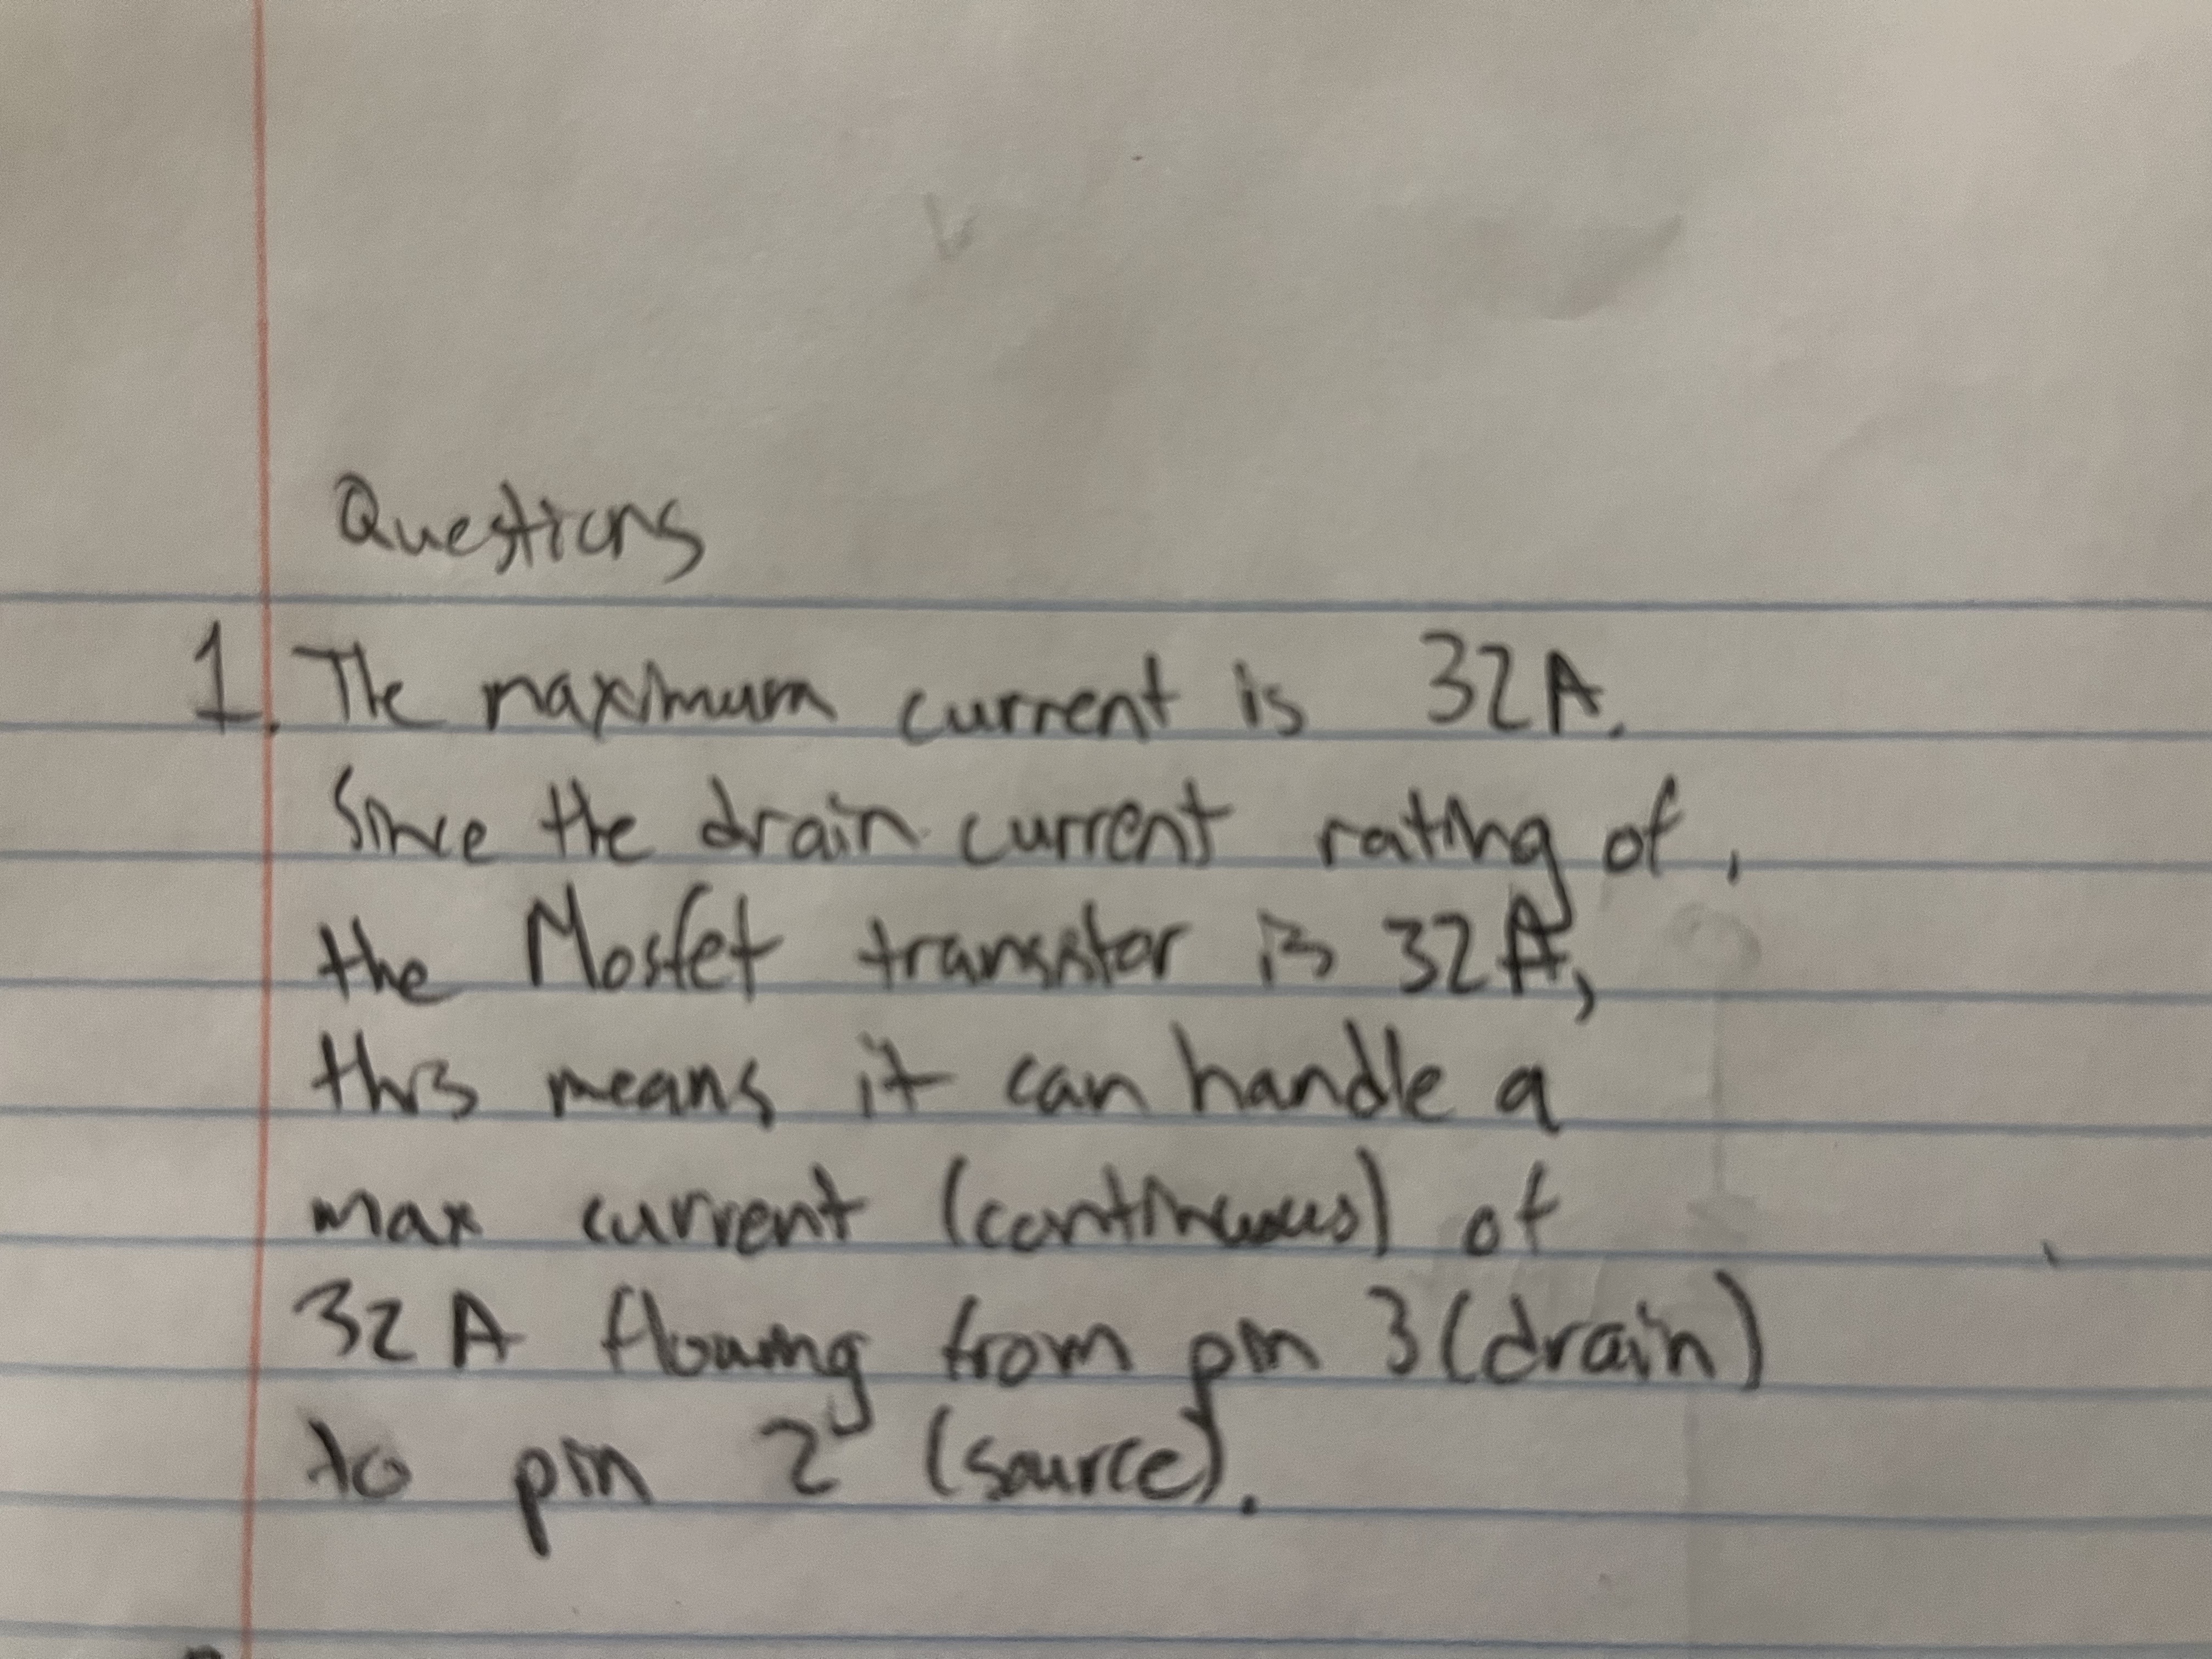 Questions
1. The maximum current is 32A.
Since the drain current rating of,
the Mosfet transistor is 32A,
this means it can handle a
max current (continuous) of
32A flowing from pin 3 (drain)
to pin 2 (source).